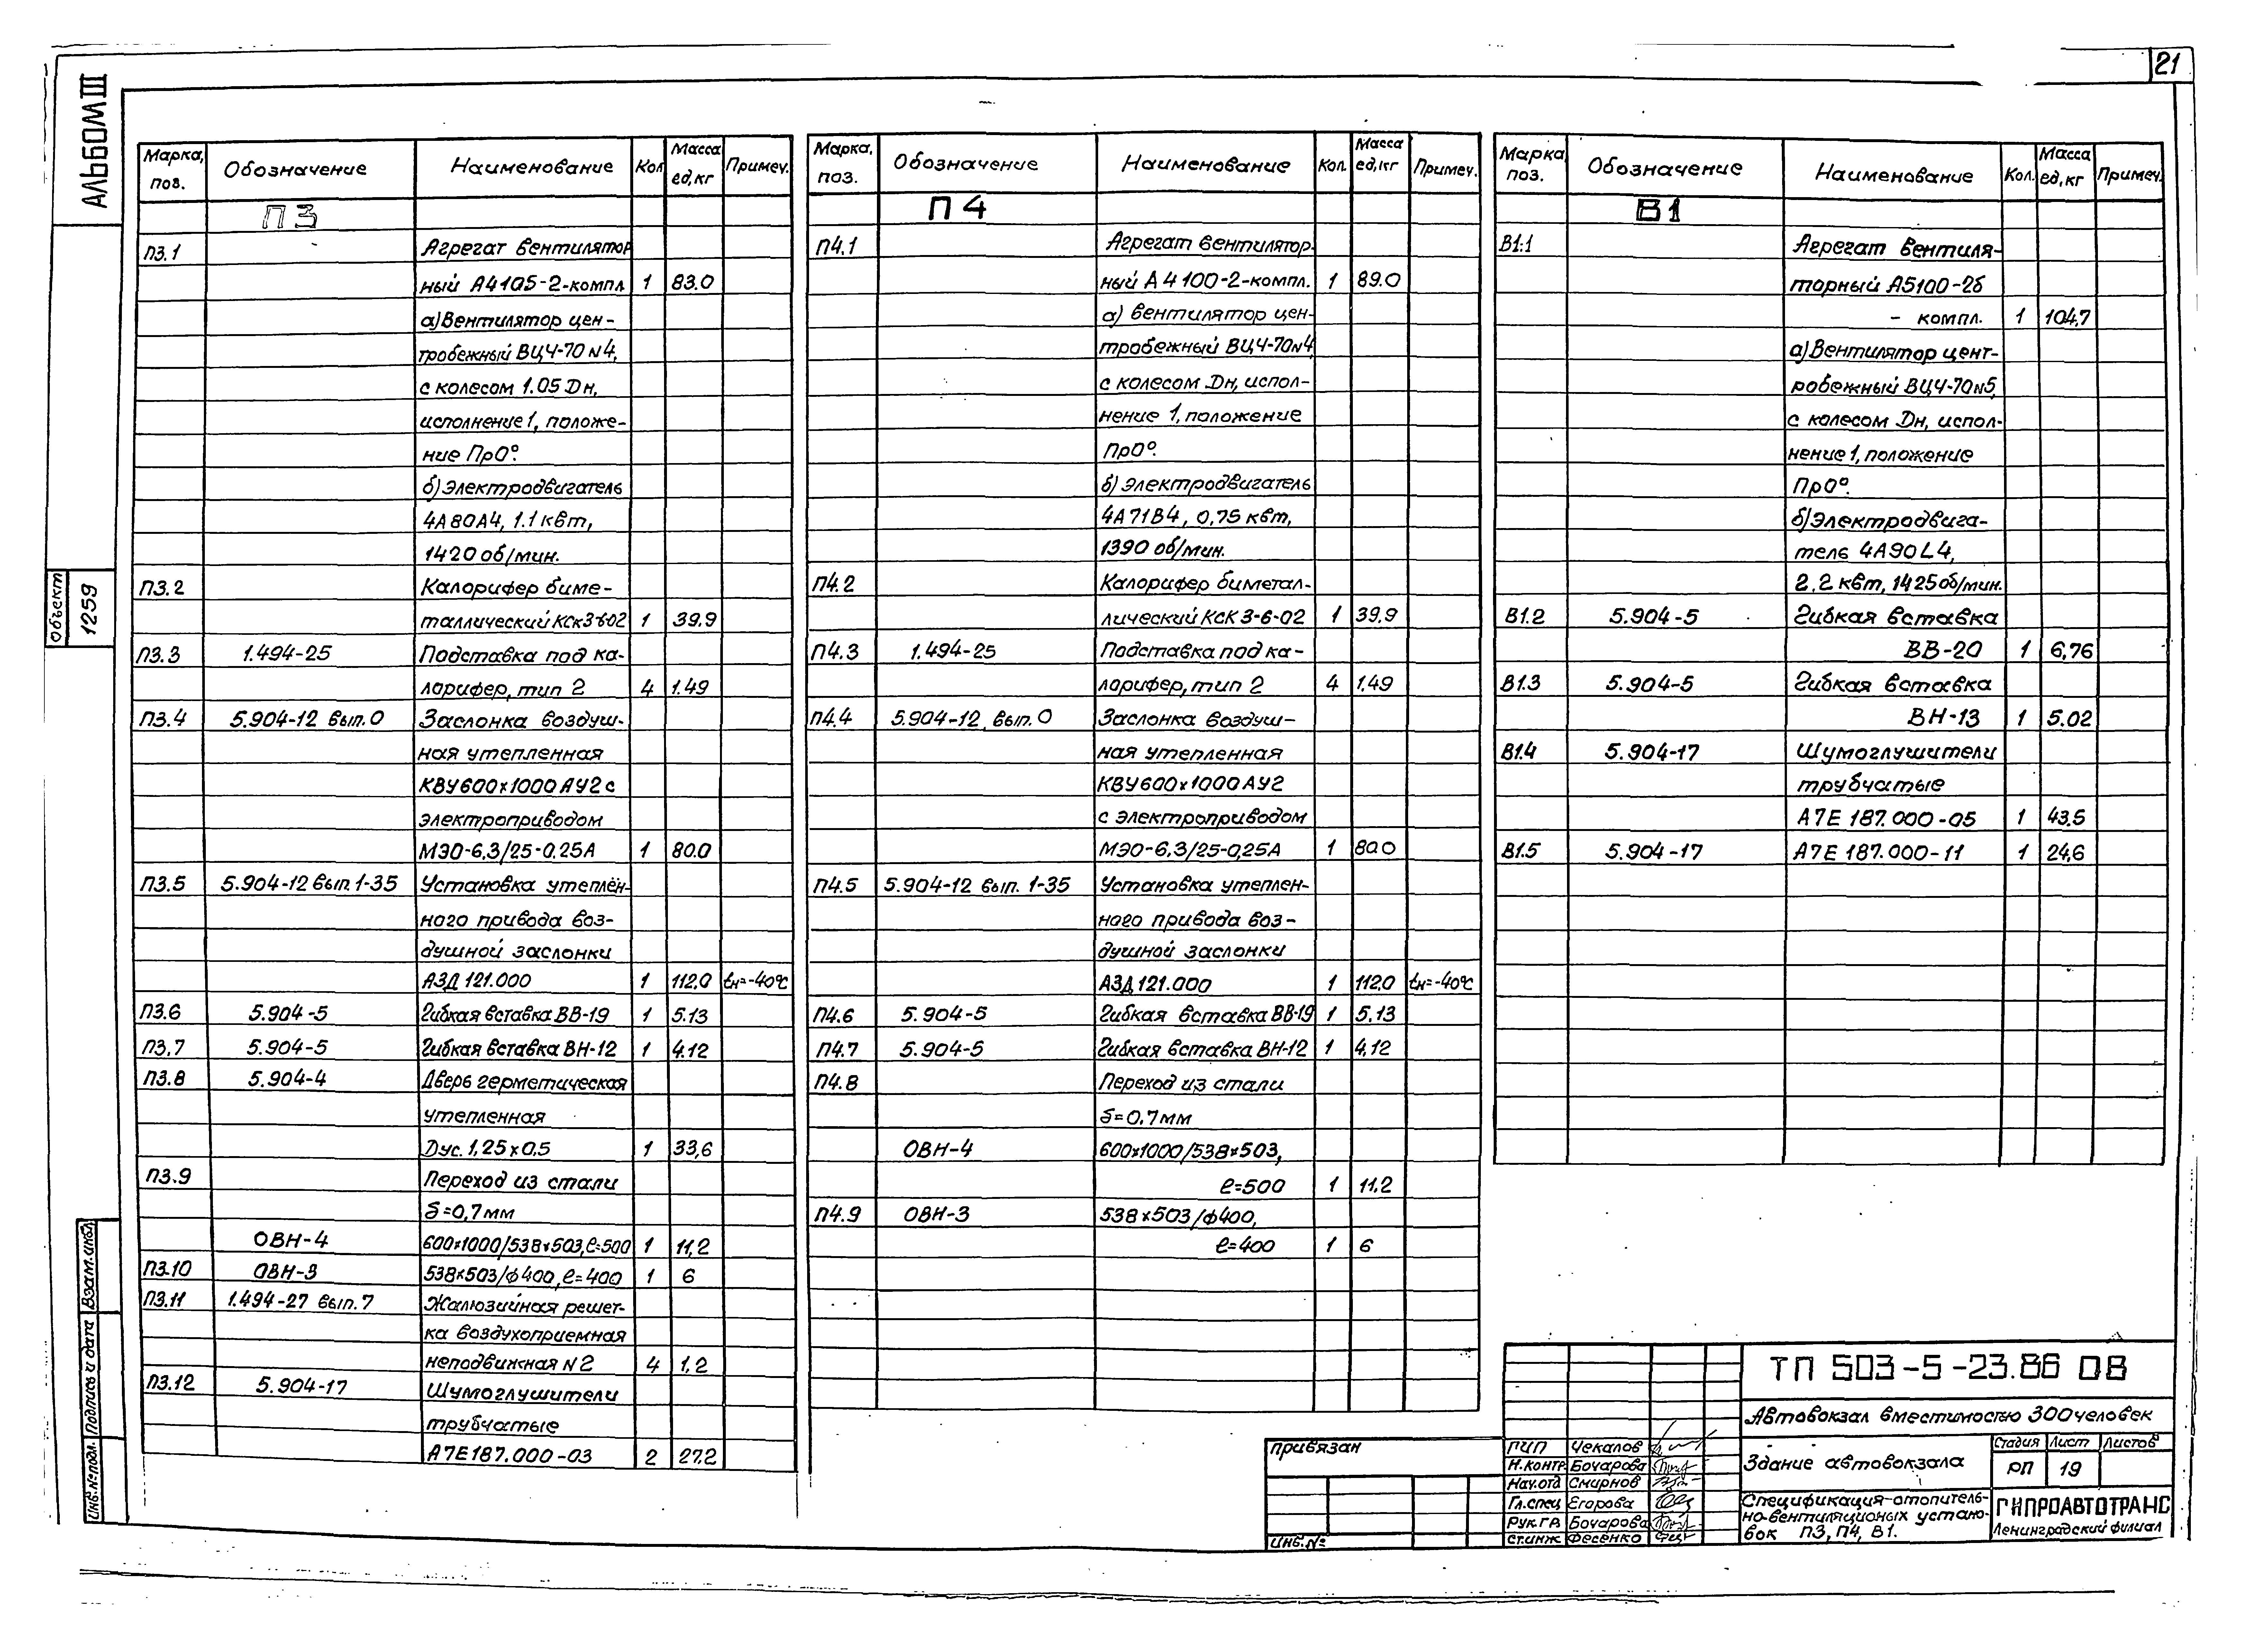 21
АЛЬБОМ III
Объект 1259
Взам.инв.
Подпись и дата
Инв.№подл.
Марка, поз. Обозначение Наименование Кол Масса ед,кг Примеч.
П3
П3.1 Агрегат вентилятор
ный А4105-2-компл 1 83.0
а)Вентилятор цен-
тробежный ВЦ4-70 N4,
с колесом 1.05 Dн,
исполнение 1, положе-
ние Пр0°.
б)Электродвигатель
4А80А4, 1.1 квт,
1420 об/мин.
П3.2 Калорифер биме-
таллический КСк3-6-02 1 39.9
П3.3 1.494-25 Подставка под ка-
лорифер, тип 2 4 1.49
П3.4 5.904-12 вып.0 Заслонка воздуш-
ная утепленная
КВУ600х1000АУ2 с
электроприводом
МЭО-6,3/25-0,25А 1 80.0
П3.5 5.904-12 вып.1-35 Установка утеплён-
ного привода воз-
душной заслонки
АЗД 121.000 1 112,0 tн=-40°С
П3.6 5.904-5 Гибкая вставка ВВ-19 1 5.13
П3.7 5.904-5 Гибкая вставка ВН-12 1 4.12
П3.8 5.904-4 Дверь герметическая
утепленная
Дус. 1,25х0,5 1 33,6
П3.9 Переход из стали
δ=0,7мм
ОВН-4 600х1000/538х503,ℓ=500 1 11,2
П3.10 ОВН-3 538х503/ф400,ℓ=400 1 6
П3.11 1.494-27 вып.7 Жалюзийная решет-
ка воздухоприемная
неподвижная N2 4 1,2
П3.12 5.904-17 Шумоглушители
трубчатые
А7Е187.000-03 2 27.2
Марка, поз. Обозначение Наименование Кол. Масса ед,кг Примеч.
П4
П4.1 Агрегат вентилятор-
ный А4100-2-компл. 1 89.0
а) вентилятор цен-
тробежный ВЦ4-70N4
с колесом Dн, испол-
нение 1, положение
Пр0°.
б) электродвигатель
4А71В4, 0,75 квт,
1390 об/мин.
П4.2 Калорифер биметал-
лический КСК 3-6-02 1 39.9
П4.3 1.494-25 Подставка под ка-
лорифер, тип 2 4 1.49
П4.4 5.904-12 вып.0 Заслонка воздуш-
ная утепленная
КВУ600х1000АУ2
с электроприводом
МЭО-6,3/25-0,25А 1 80.0
П4.5 5.904-12 вып. 1-35 Установка утеплен-
ного привода воз-
душной заслонки
АЗД121.000 1 112.0 tн=-40°С
П4.6 5.904-5 Гибкая вставка ВВ-19 1 5.13
П4.7 5.904-5 Гибкая вставка ВН-12 1 4,12
П4.8 Переход из стали
δ=0.7мм
ОВН-4 600х1000/538х503,
ℓ=500 1 11.2
П4.9 ОВН-3 538х503/ф400,
ℓ=400 1 6
Марка поз. Обозначение Наименование Кол. Масса ед,кг Примеч.
В1
В1.1 Агрегат вентиля-
торный А5100-2б
- компл. 1 104,7
а)Вентилятор цент-
робежный ВЦ4-70N5,
с колесом Dн, испол-
нение 1, положение
Пр0°.
б)Электродвига-
тель 4А90L4,
2.2 квт, 1425 об/мин.
В1.2 5.904-5 Гибкая вставка
ВВ-20 1 6,76
В1.3 5.904-5 Гибкая вставка
ВН-13 1 5.02
В1.4 5.904-17 Шумоглушители
трубчатые
А7Е 187.000-05 1 43.5
В1.5 5.904-17 А7Е 187.000-11 1 24,6
привязан
инв.№
ТП 503-5-23.86 ОВ
Автовокзал вместимостью 300человек
ГИП Чекалов
Н.контр Бочарова
Нач.отд Смирнов
Гл.спец Егорова
Рук.гр Бочарова
Ст.инж Фесенко
Здание автовокзала
Стадия Лист Листов
РП 19
Спецификация отопитель-
но-вентиляционых устано-
вок П3, П4, В1.
ГИПРОАВТОТРАНС
Ленинградский филиал